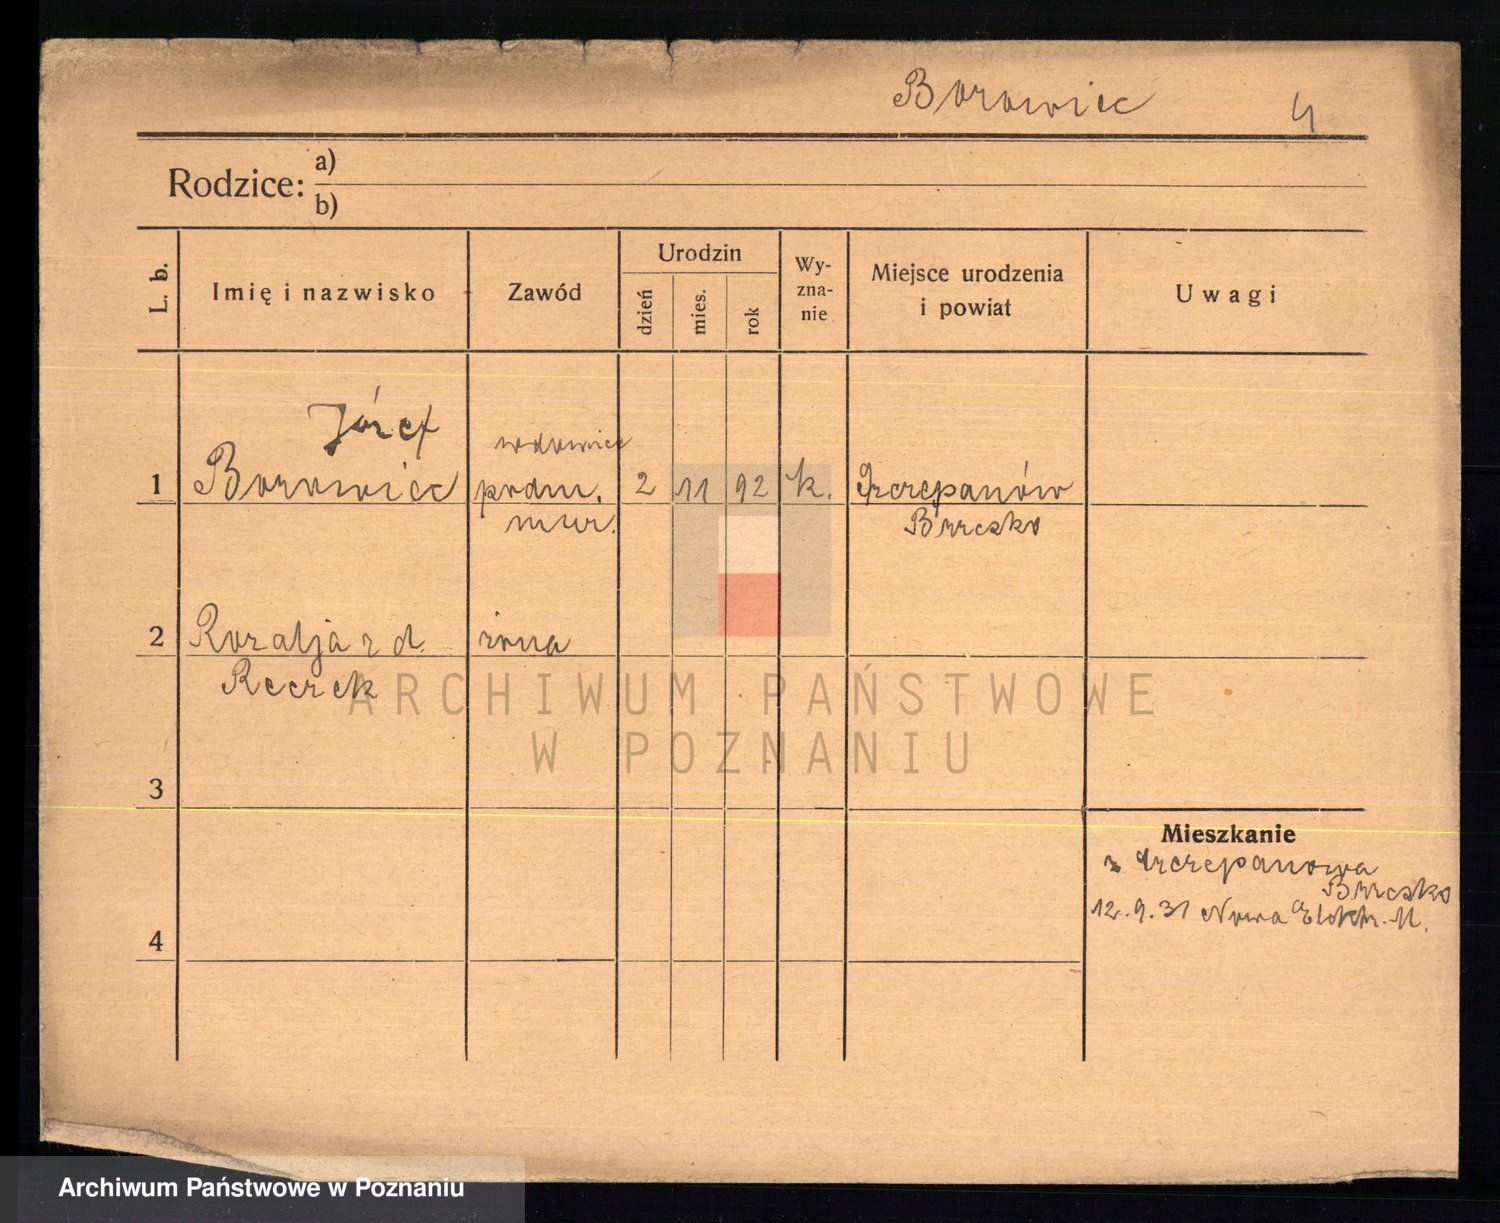 Borowiec 4
Rodzice: a)
b)
L. b.
Imię i nazwisko
Zawód
Urodzin
dzień
mies.
rok
Wy-
zna-
nie
Miejsce urodzenia
i powiat
Uwagi
Józef
wdowiec
1 Borowiec podm. 2 11 92 k. Szczepanów
mur. Brzesko
2 Rozalja z d. żona
Reczek
ARCHIWUM PAŃSTWOWE
W POZNANIU
3
Mieszkanie
z Szczepanowa
Brzesko
12.9.31 Nowa
4
Archiwum Państwowe w Poznaniu